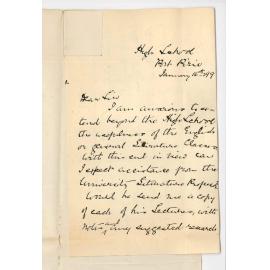 High School
Port Pirie
January 10th 1919
Dear Sir
I am anxious to ex-
tend beyond the High School
the usefulness of the English
or general Literature Classes.
With this end in view can
I expect assistance from the
University Literature Profess
Would he send me a copy
of each of his Lectures, with
Notes, and any suggested research